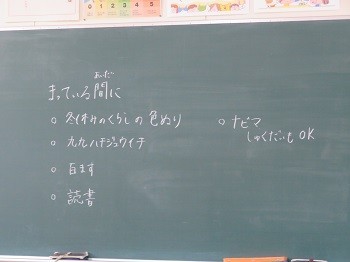 まっている間に
あいだ
○ 冬休みのくらしの色ぬり
○ 九九ハチジュウイチ
○ 百ます
○ 読書
○ ナビマ
しゅくだいもOK